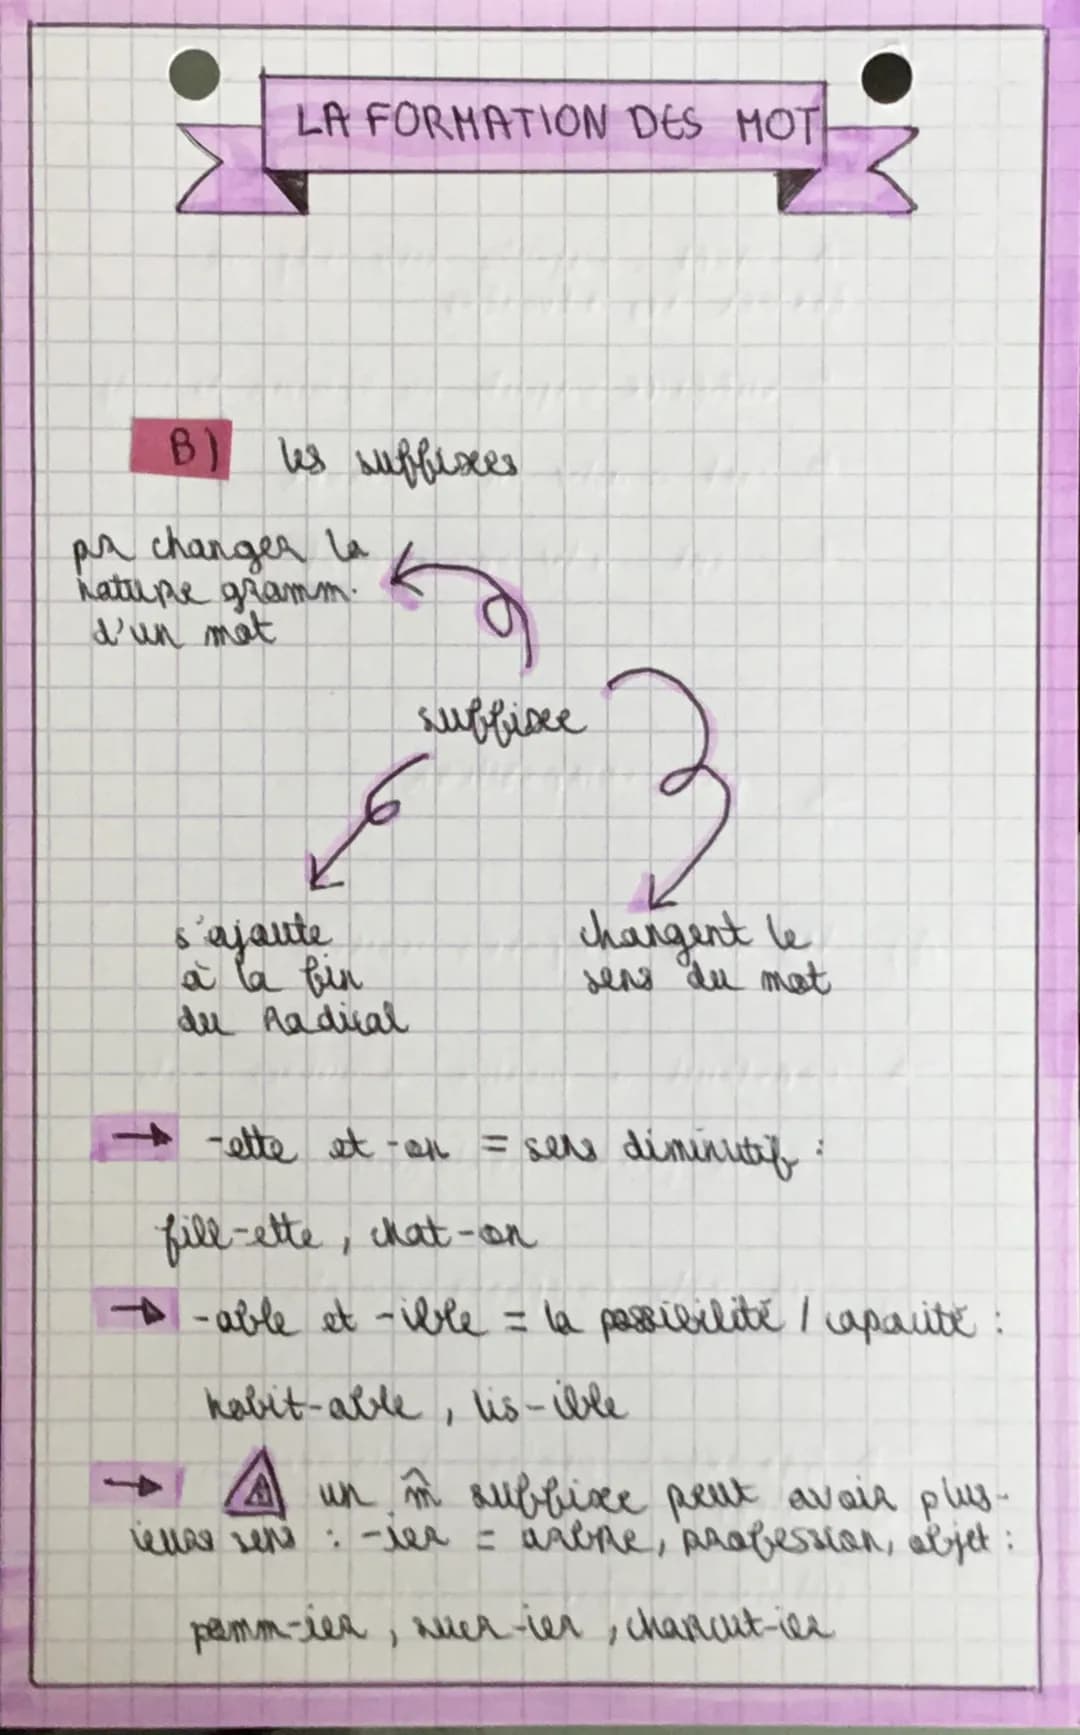 LA FORMATION DES MOT
B) les suffixes
pr changer la
nature gramm.
d'un mot
suffixe
s'ajoute
à la fin
du radical
changent le
sens du mot
→ -ette et -on = sens diminutif :
fill-ette, chat-on
→ -able et -ible = la possibilité / capacité :
habit-able, lis-ible
→ un m̂ suffixe peut avoir plus-
ieurs sens : -ier = arbre, profession, objet :
pomm-ier, sucr-ier, charcut-ier